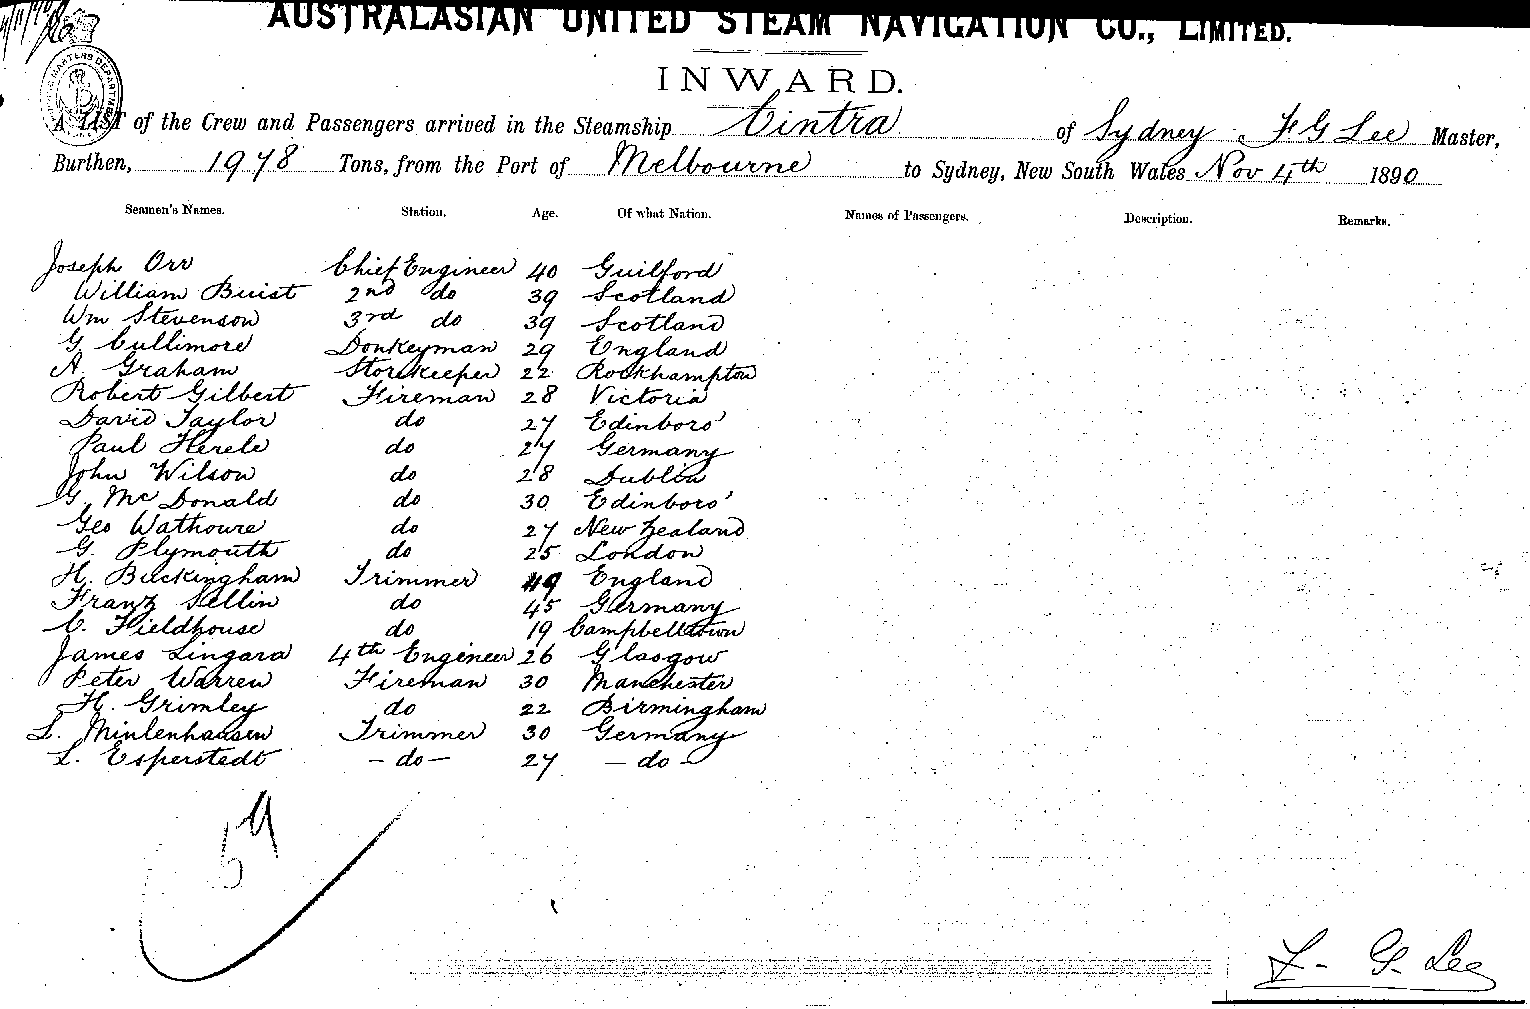 AUSTRALASIAN UNITED STEAM NAVIGATION CO., LIMITED.
INWARD.
A LIST of the Crew and Passengers arrived in the Steamship Cintra of Sydney, F G Lee Master,
Burthen, 1978 Tons, from the Port of Melbourne to Sydney, New South Wales Nov 4th 1890
Seamen's Names. Station. Age. Of what Nation. Names of Passengers. Description. Remarks.
Joseph Orr Chief Engineer 40 Guilford
William Buist 2nd do 39 Scotland
Wm Stevenson 3rd do 39 Scotland
G. Cullimore Donkeyman 29 England
A. Graham Storekeeper 22 Rockhampton
Robert Gilbert Fireman 28 Victoria
David Taylor do 27 Edinboro'
Paul Herele do 27 Germany
John Wilson do 28 Dublin
G. McDonald do 30 Edinboro'
Geo Wathoure do 27 New Zealand
G. Plymouth do 25 London
H. Buckingham Trimmer 49 England
Franz Sellin do 45 Germany
C. Fieldhouse do 19 Campbelltown
James Lingard 4th Engineer 26 Glasgow
Peter Warren Fireman 30 Manchester
H. Grimley do 22 Birmingham
L. Minlenhausen Trimmer 30 Germany
L. Esperstedt - do - 27 - do -
59
F. G. Lee